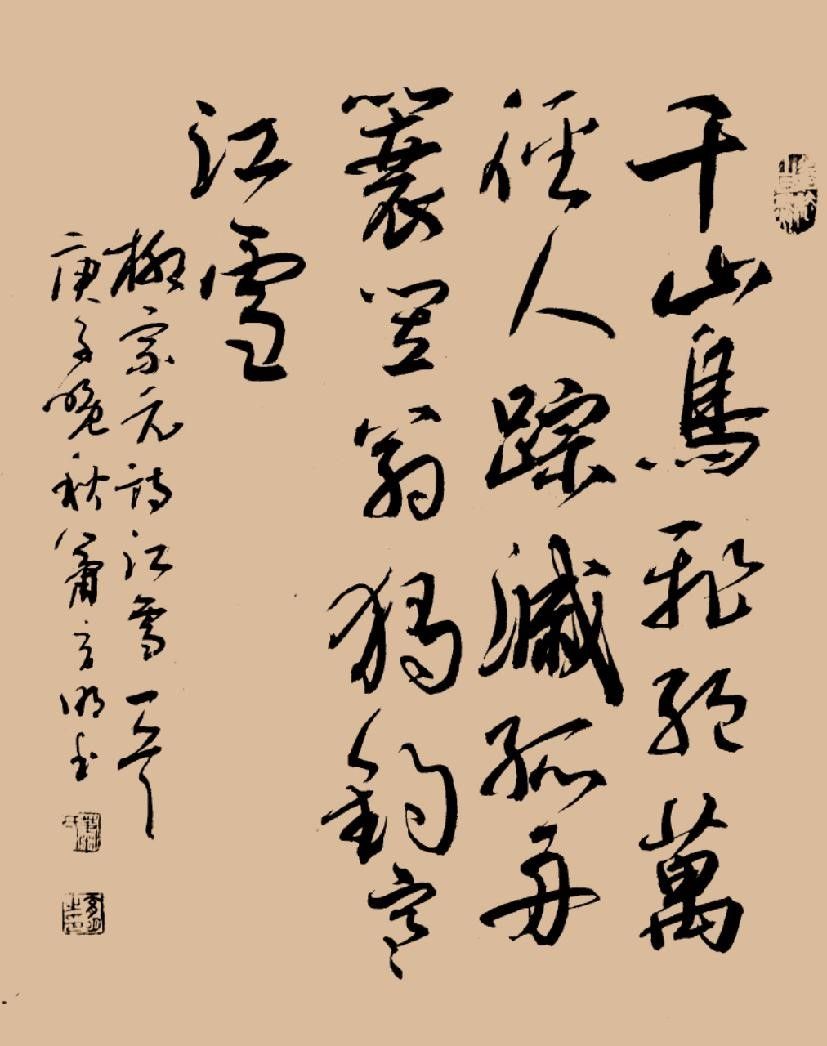 千山鳥飛絕萬
徑人踪滅孤舟
簑笠翁獨釣寒
江雪
柳宗元詩江雪一首
庚子晚秋蕭方明書